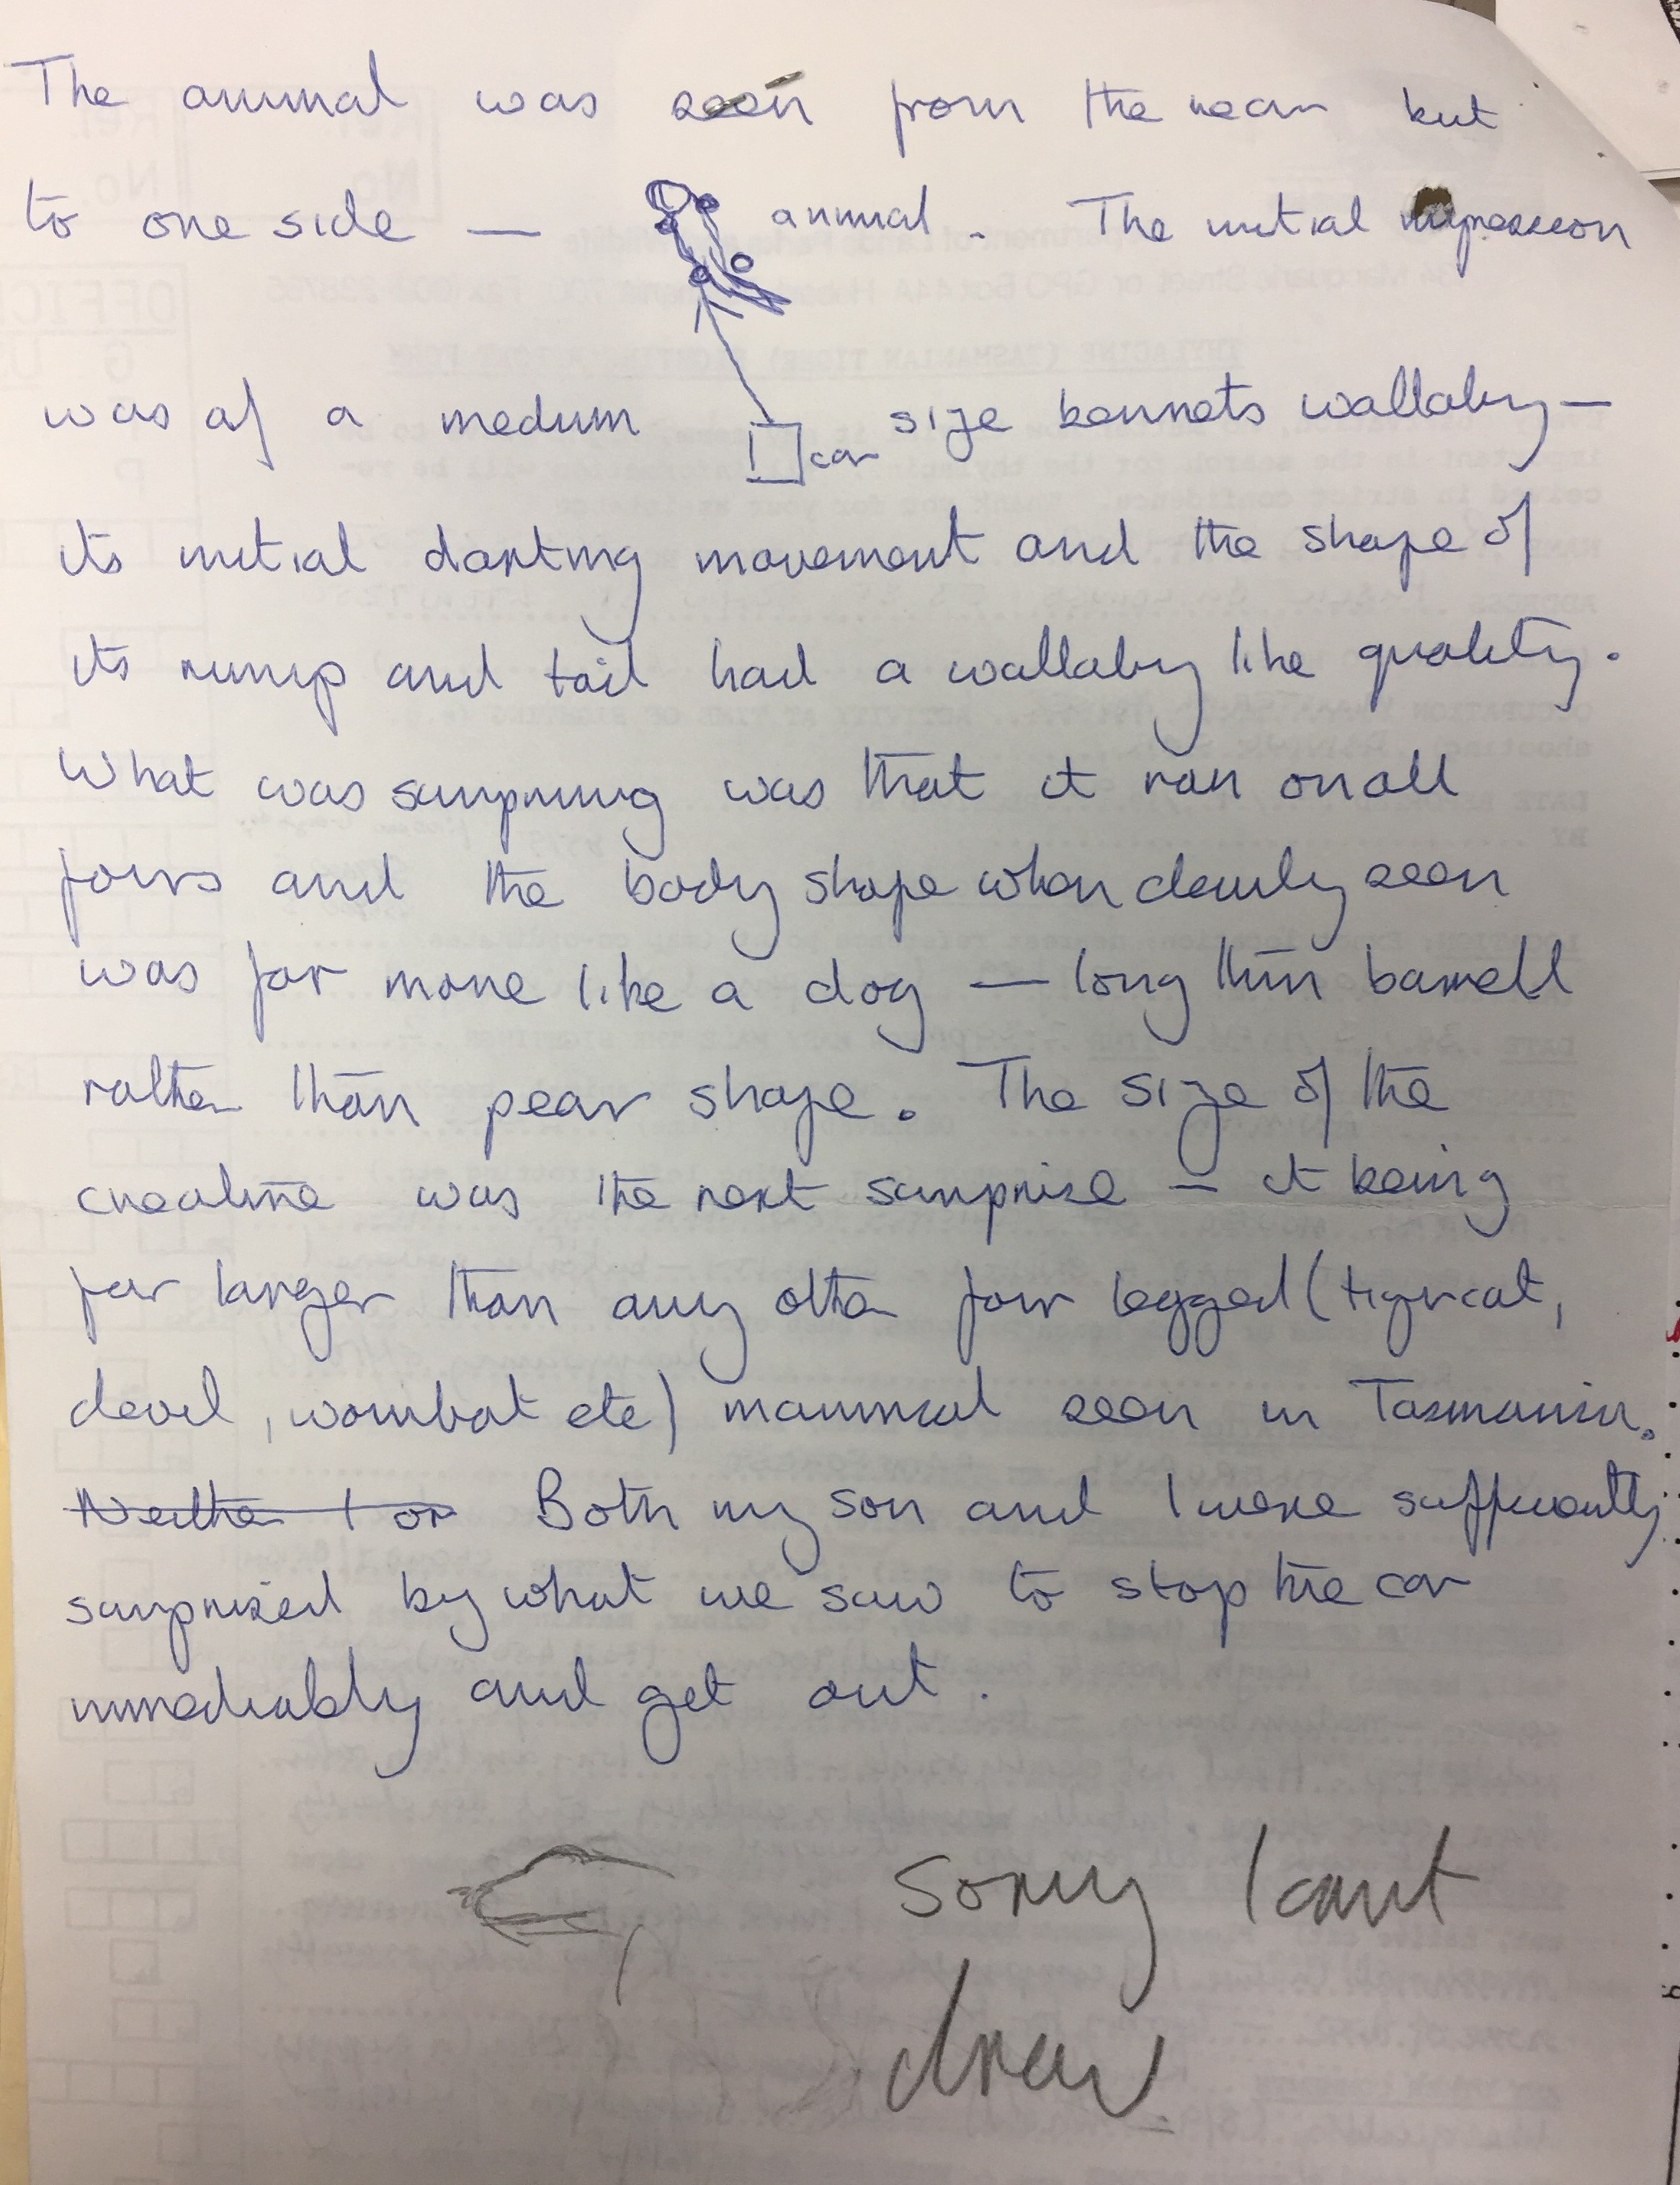 The animal was seen from the rear but
to one side — animal. The initial impression
was of a medium size bennets wallaby —
car
its initial darting movement and the shape of
its rump and tail had a wallaby like quality.
What was surprising was that it ran on all
fours and the body shape when clearly seen
was far more like a dog — long thin barrell
rather than pear shape. The size of the
creature was the next surprise — it being
far larger than any other four legged (tigercat,
devil, wombat etc) mammal seen in Tasmania.
Neither I or Both my son and I were sufficiently
surprised by what we saw to stop the car
immediately and get out.
Sorry I cant
draw